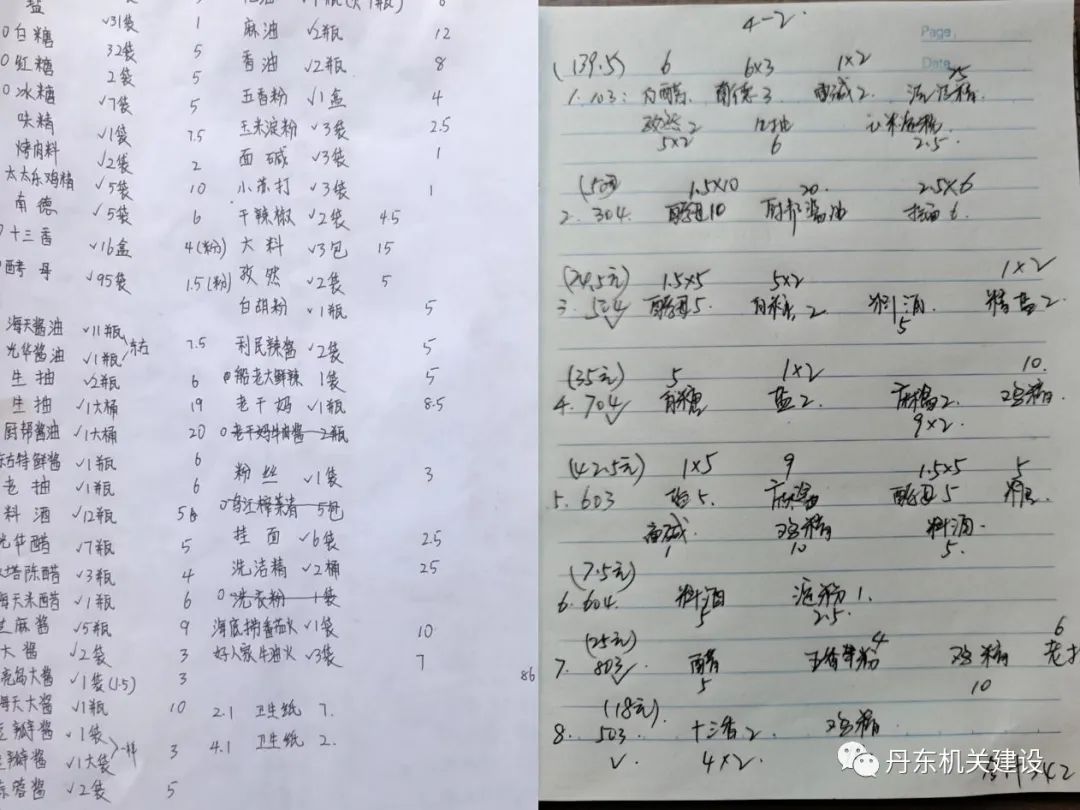 盐 √31袋 1
白糖 32袋 5
红糖 2袋 5
冰糖 √7袋 5
味精 √1袋 7.5
烤肉料 √2袋 2
太太乐鸡精 √5袋 10
南德 √5袋 6
十三香 √16盒 4(粉)
酵母 √95袋 1.5(粉)
海天酱油 √11瓶 7.5
光华酱油 √1瓶
生抽 √2瓶 6
生抽 √1大桶 19
厨帮酱油 √1大桶 20
东方特鲜酱 √1瓶 6
老抽 √1瓶 6
料酒 √12瓶 5
光华醋 √7瓶 5
塔陈醋 √3瓶 4
海天米醋 √1瓶 6
芝麻酱 √5瓶 9
大酱 √2袋 3
岛大酱 √1袋(1.5) 3
海天大酱 √1瓶 10
豆瓣酱 √1袋
豆瓣酱 √1大袋 一样 3
蒜蓉酱 √2袋 5
麻油 √2瓶 12
香油 √2瓶 8
五香粉 √1盒 4
玉米淀粉 √3袋 2.5
面碱 √3袋 1
小苏打 √3袋 1
干辣椒 √2袋 45
大料 √3包 15
孜然 √2袋 5
白胡粉 √1瓶 5
利民辣酱 √2袋 5
船老大鲜辣 1袋 5
老干妈 √1瓶 8.5
老干妈牛肉酱 2瓶
粉丝 √1袋 3
乌江榨菜清 5包
挂面 √6袋 2.5
洗洁精 √2桶 25
洗衣粉 1袋
海底捞番茄火 √1袋 10
好人家牛油火 √3袋 7
86
2.1 卫生纸 7.
4.1 卫生纸 2.
4-2.
Page.
Date.
(139.5) 6 6×3 1×2
1. 103: 白醋. 南德3 面碱2. 洗洁精.
孜然2 玉米淀粉.
5×2 6 2.5.
1.5×10 20. 2.5×6
2. 304. 酵母10 厨邦酱油 挂面6.
(24.5元) 1.5×5 5×2 1×2
3. 504 酵母5. 白糖.2 料酒. 精盐2.
5
(35元) 5 1×2 10.
4. 704 白糖 盐2. 麻酱2. 鸡精.
9×2.
(42.5元) 1×5 9 1.5×5 5
5. 603 盐5. 麻酱 酵母5
面碱. 鸡精 料酒.
1 10 5.
(7.5元)
6. 604. 料酒 淀粉1.
5 2.5.
(25元) 4 6
7. 803 醋 五香粉 鸡精 老抽
5 10
(18元).
8. 503. 十三香2. 鸡精
4×2.
342
丹东机关建设